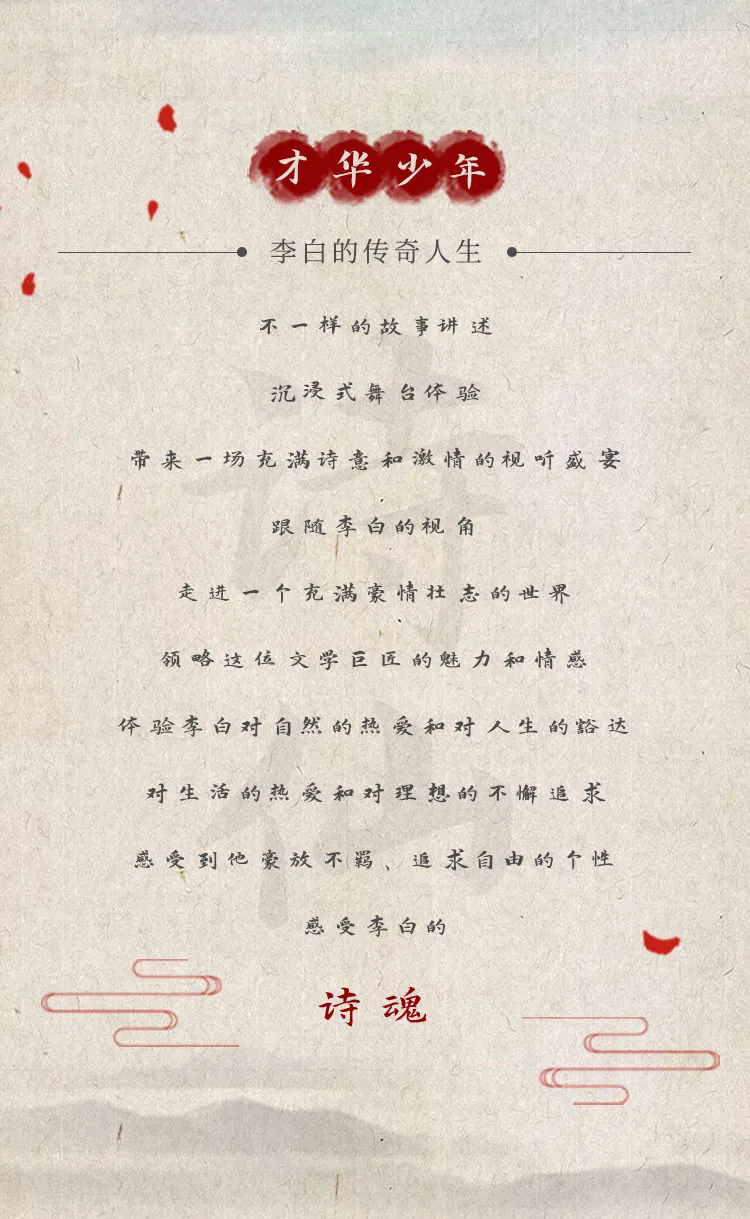 才华少年
李白的传奇人生
不一样的故事讲述
沉浸式舞台体验
带来一场充满诗意和激情的视听盛宴
跟随李白的视角
走进一个充满豪情壮志的世界
领略这位文学巨匠的魅力和情感
体验李白对自然的热爱和对人生的豁达
对生活的热爱和对理想的不懈追求
感受到他豪放不羁、追求自由的个性
感受李白的
诗魂
诗仙